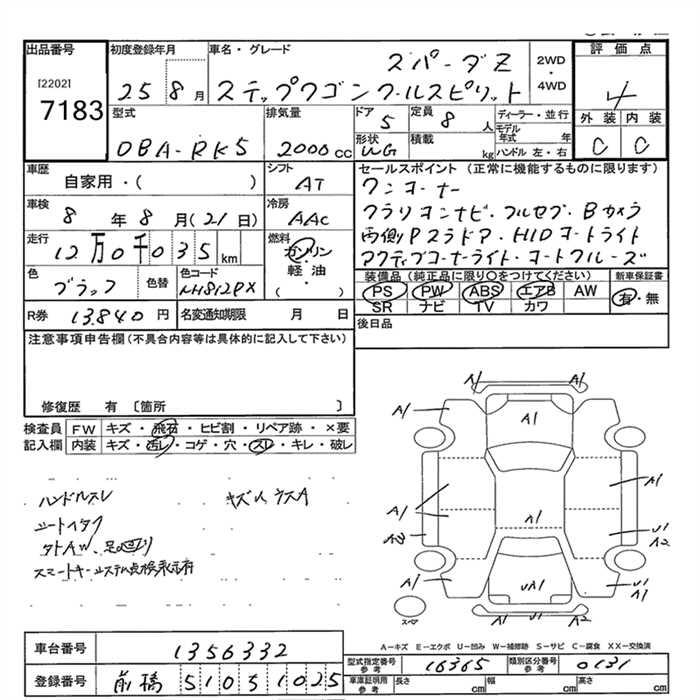 出品番号 初度登録年月 車名・グレード 2WD・4WD 評価点
[2202] 7183
25 8月 スパーダZ
ステップワゴン クールスピリット
4
型式 排気量 ドア 定員 ディーラー・並行 外装 内装
DBA-RK5 2000cc 5 8人 モデル年式 年 C C
形状 積載 kg ハンドル 左・右
WG
車歴 自家用・( ) シフト AT
セールスポイント(正常に機能するものに限ります)
ワンオーナー
車検 8年8月(21日) 冷房 AAC
クラリオンナビ・フルセグ・Bカメラ
両側Pスラドア・HIDオートライト
走行 12万0千035km 燃料 ガソリン・軽油・( )
アクティブコーナーライト・オートクルーズ
色 ブラック 色替 色コード NH812PX
装備品(純正品に限り〇をつけてください) 新車保証書
PS PW ABS エアB AW 有・無
SR ナビ TV カワ
R券 13840円 名変通知期限 月 日
後日品
注意事項申告欄(不具合内容等は具体的に記入して下さい)
修復歴 有 〔箇所 〕
検査員記入欄 FW キズ・飛石・ヒビ割・リペア跡・×要
内装 キズ・汚レ・コゲ・穴・スレ・キレ・破レ
ハンドルスレ キズ、ウスA
シートイタク
スマートキーシステム点検表示有
A1 A1
A1 A1
A1 A1
A2 A1 U1 A2
A1 UA1 U1 A2
スペア
A-キズ E-エクボ U-凹み W-補修跡 S-サビ C-腐食 XX-交換済
車台番号 1356332
型式指定番号 参考 16365 類別区分番号 参考 0131
登録番号 前橋 510 ス 1025
車庫証明用 参考 長さ cm 幅 cm 高さ cm